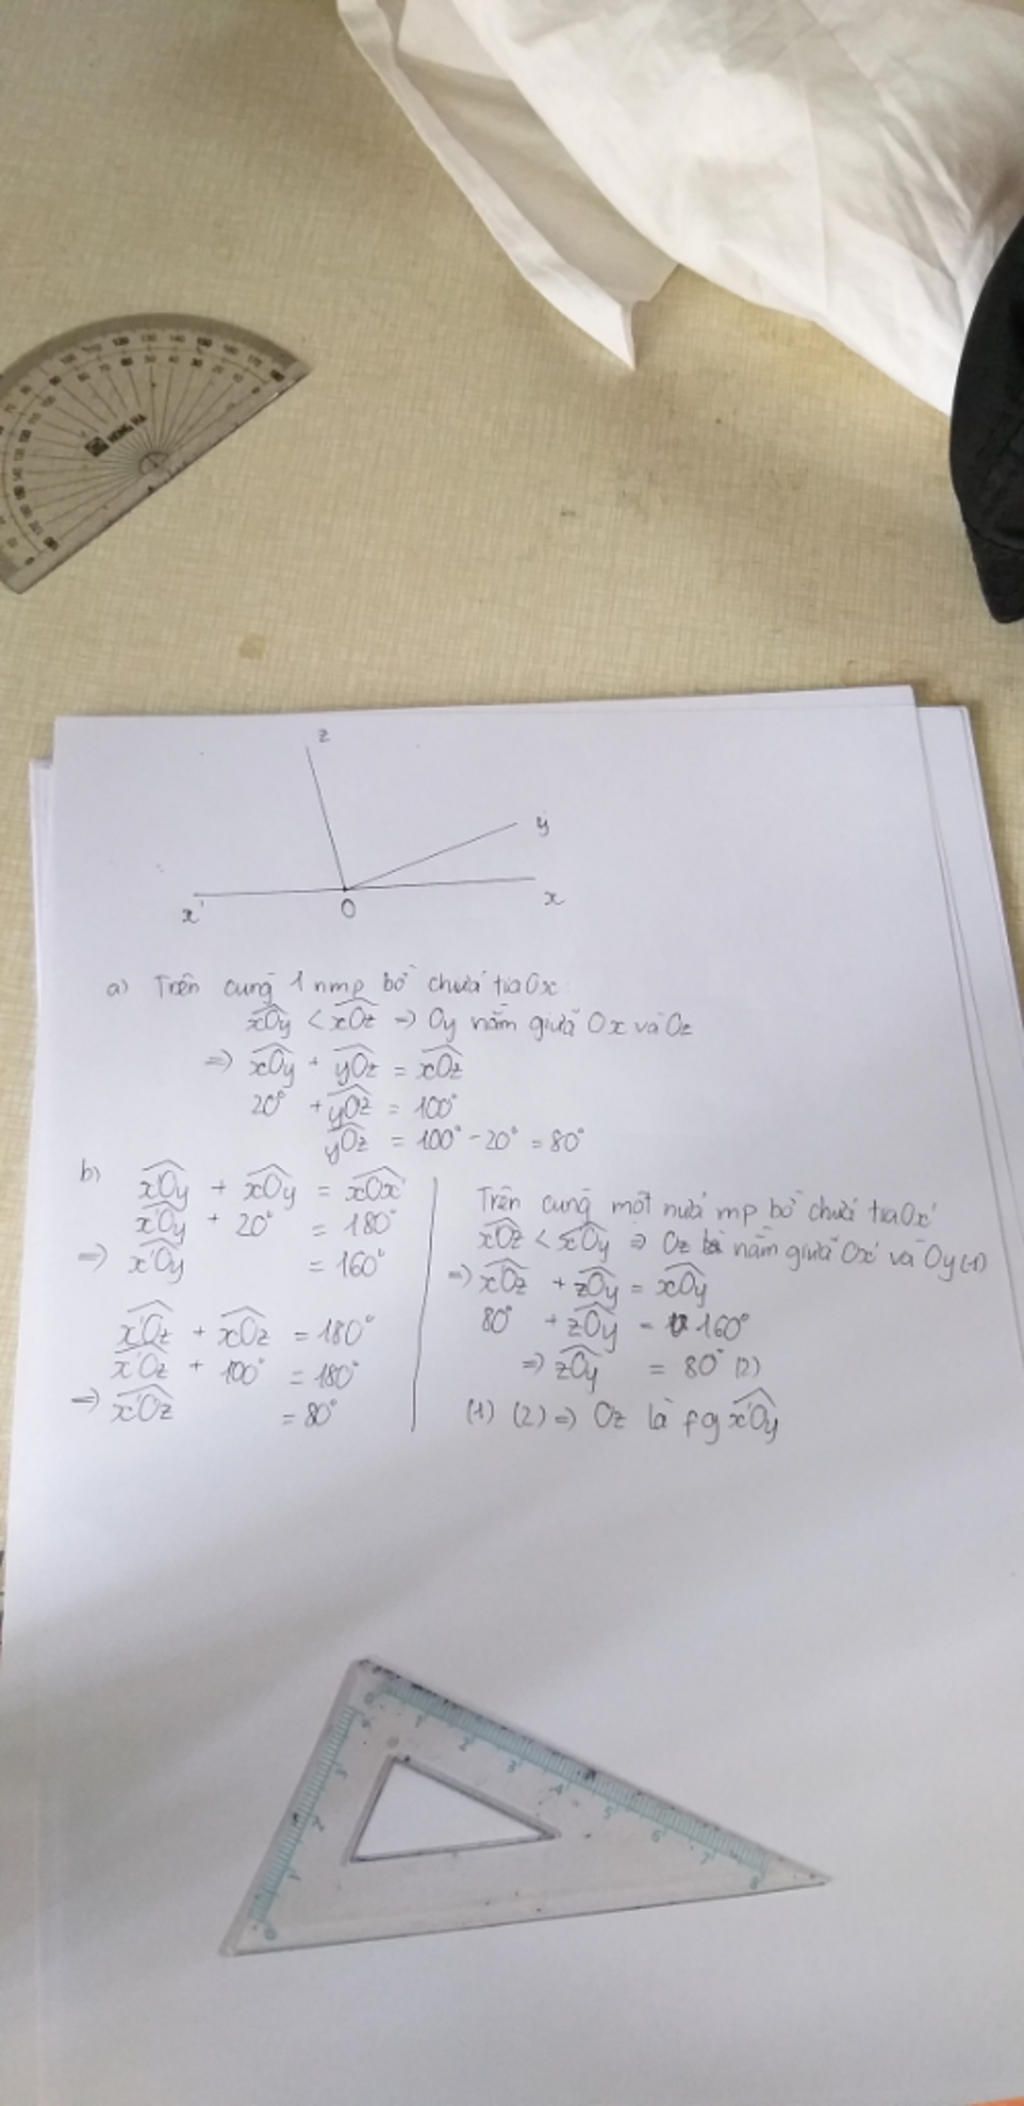 HENG HA
z
y
x'
O
x
a) Trên cùng 1 nmp bờ chứa tia Ox:
xOy < xOz => Oy nằm giữa Ox và Oz
=> xOy + yOz = xOz
20° + yOz = 100°
yOz = 100° - 20° = 80°
b) x'Oy + xOy = xOx'
x'Oy + 20° = 180°
=> x'Oy = 160°
x'Oz + xOz = 180°
x'Oz + 100° = 180°
=> x'Oz = 80°
Trên cùng một nửa mp bờ chứa tia Ox'
x'Oz < x'Oy => Oz nằm giữa Ox' và Oy (1)
=> x'Oz + zOy = x'Oy
80° + zOy = 160°
=> zOy = 80° (2)
(1) (2) => Oz là pg x'Oy
0 1 2 3 4 5 6 7 8